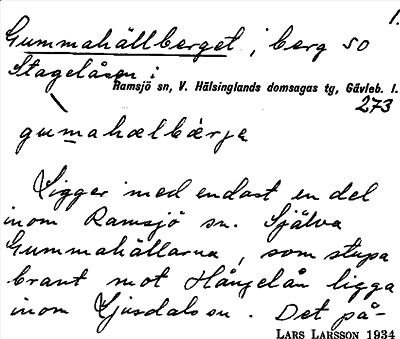 1.
Gummahällberget, berg SO
Stagelåsen i
Ramsjö sn, V. Hälsinglands domsagas tg, Gävleb. l.
273
gumahælbærja
Ligger med endast en del
inom Ramsjö sn. Själva
Gummahällarna, som stupa
brant mot Hångelån ligga
inom Ljusdals sn. Det på-
LARS LARSSON 1934